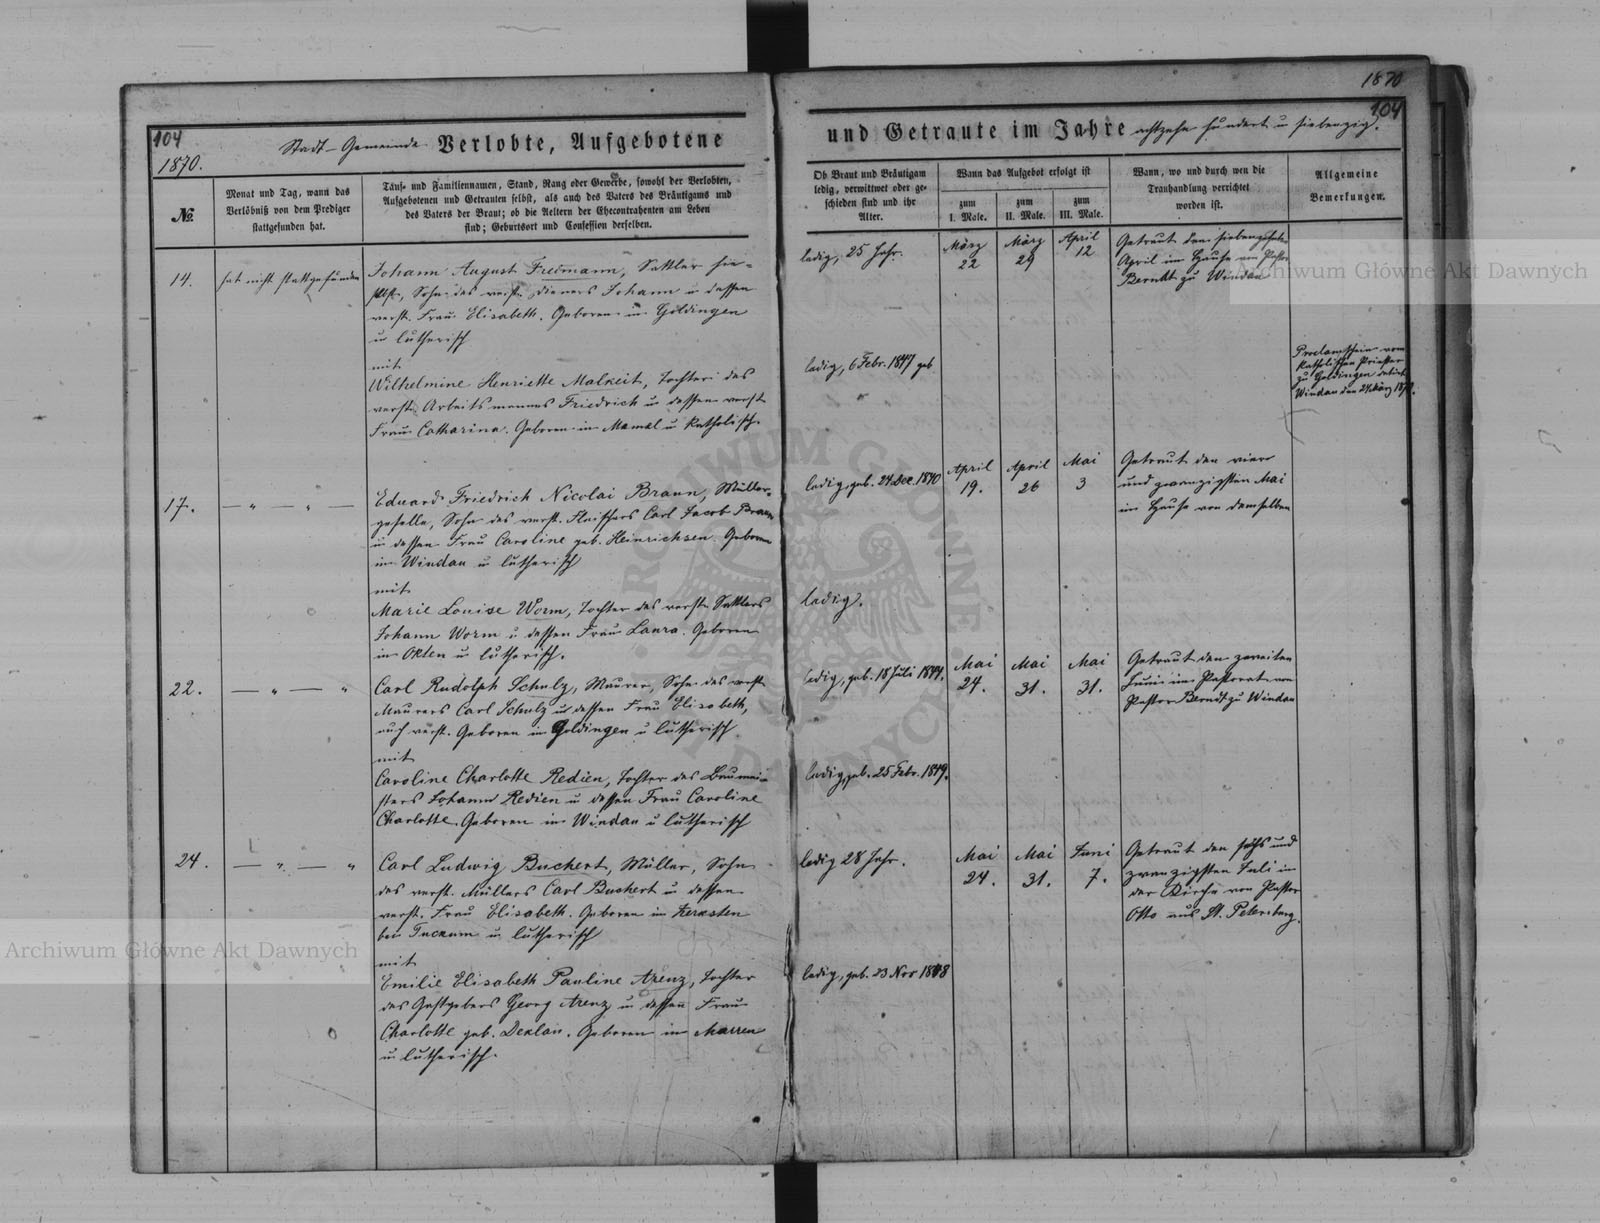 1870
104
104
1870.
Stadt-Gemeinde Verlobte, Aufgebotene
und Getraute im Jahre achtzehn hundert u siebenzig.
No.
Monat und Tag, wann das
Verlöbniß von dem Prediger
stattgefunden hat.
Tauf- und Familiennamen, Stand, Rang oder Gewerbe, sowohl der Verlobten,
Aufgebotenen und Getrauten selbst, als auch des Vaters des Bräutigams und
des Vaters der Braut; ob die Aeltern der Ehecontrahenten am Leben
sind; Geburtsort und Confession derselben.
Ob Braut und Bräutigam
ledig, verwittwet oder ge-
schieden sind und ihr
Alter.
Wann das Aufgebot erfolgt ist
zum
I. Male.
zum
II. Male.
zum
III. Male.
Wann, wo und durch wen die
Trauhandlung verrichtet
worden ist.
Allgemeine
Bemerkungen.
14.
hat nicht stattgefunden
Johann August Freimann, Sattler hie-
selbst, Sohn des verst. Dieners Johann u dessen
verst. Frau Elisabeth. Geboren in Goldingen
u lutherisch
mit
Wilhelmine Henriette Malkeit, Tochter des
verst. Arbeitsmannes Friedrich u dessen verst.
Frau Catharina. Geboren in Memel u katholisch.
ledig, 25 Jahr.
ledig, 6 Febr. 1847 geb
März
22
März
29
April
12
Getraut den siebenzehnten
April im Hause von Pastor
Berndt zu Windau
Proclamschein vom
katholischen Priester
zu Goldingen
Windau den 24 März 1870.
17.
— " — " —
Eduard Friedrich Nicolai Braun, Müller-
geselle, Sohn des verst. Fleischers Carl Jacob Braun
u dessen Frau Caroline geb. Heinrichsen. Geboren
in Windau u lutherisch
mit
Marie Louise Worm, Tochter des verst. Sattlers
Johann Worm u dessen Frau Laura. Geboren
in Okten u lutherisch.
ledig, geb. 24 Dec. 1840
ledig.
April
19.
April
26
Mai
3
Getraut den vier
und zwanzigsten Mai
im Hause von demselben
22.
— " — "
Carl Rudolph Schulz, Maurer, Sohn des verst.
Maurers Carl Schulz u dessen Frau Elisabeth,
auch verst. Geboren in Goldingen u lutherisch
mit
Caroline Charlotte Redien, Tochter des Baumei-
sters Johann Redien u dessen Frau Caroline
Charlotte. Geboren in Windau u lutherisch
ledig, geb. 18 Juli 1844.
ledig, geb. 25 Febr. 1849.
Mai
24.
Mai
31.
Mai
31.
Getraut den zweiten
Juni im Pastorat von
Pastor Berndt zu Windau
24.
— " — "
Carl Ludwig Buchert, Müller, Sohn
des verst. Müllers Carl Buchert u dessen
verst. Frau Elisabeth. Geboren in
bei Tuckum u lutherisch
mit
Emilie Elisabeth Pauline Arenz, Tochter
des Gastgebers Georg Arenz u dessen Frau
Charlotte geb. Dexlan. Geboren in Marren
u lutherisch.
ledig 28 Jahr.
ledig, geb. 23 Nov 1848
Mai
24.
Mai
31.
Juni
7.
Getraut den sechs und
zwanzigsten Juli in
der Kirche von Pastor
Otto aus St. Petersburg.
Archiwum Główne Akt Dawnych
Archiwum Główne Akt Dawnych
ARCHIWUM GŁÓWNE AKT DAWNYCH